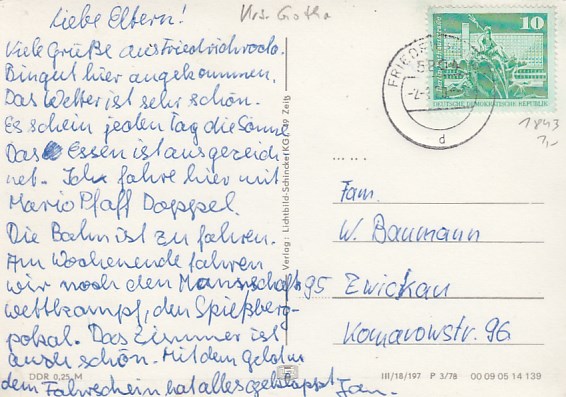 Liebe Eltern!
Krs. Gotha
Viele Grüße aus Friedrichroda.
Bin gut hier angekommen.
Das Wetter ist sehr schön.
Es schein jeden Tag die Sonne
Das Essen ist ausgezeich
net. Ich fahre hier mit
Mario Pfaff Doppel.
Die Bahn ist zu fahren.
Am Wochenende fahren
wir noch den Mannschafts
wettkampf, den Spießberg-
pokal. Das Zimmer ist
auch schön. Mit dem
dem Fahrschein hat alles geklappt
Jan.
DDR 0,25 M
Verlag: Lichtbild-Schincke KG, 49 Zeitz
10
DEUTSCHE DEMOKRATISCHE REPUBLIK
d
1843
1,-
Fam.
W. Baumann
95 Zwickau
Komarowstr. 96
III/18/197 P 3/78 00 09 05 14 139